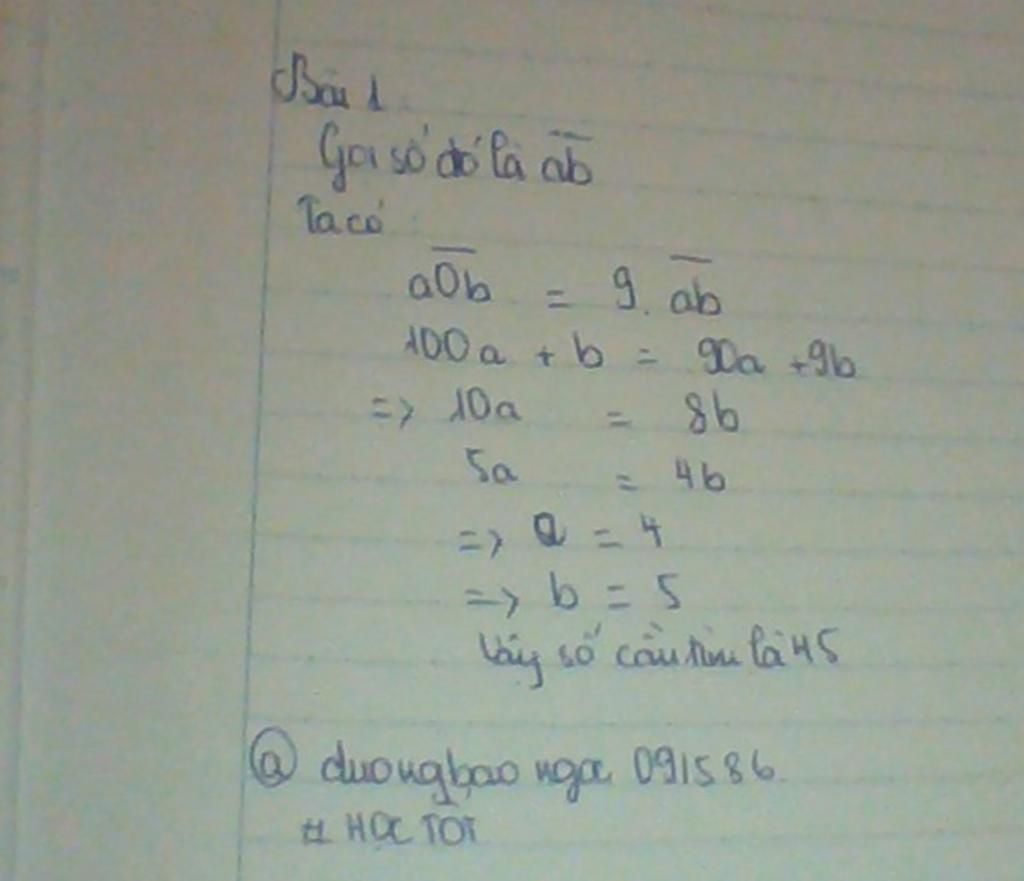 Bài 1
Gọi số đó là a̅b̅
Ta có :
a̅0̅b̅ = 9. a̅b̅
100a + b = 90a + 9b
=> 10a = 8b
5a = 4b
=> a = 4
=> b = 5
Vậy số cần tìm là 45
@ duongbaonga 091586
# HỌC TỐT